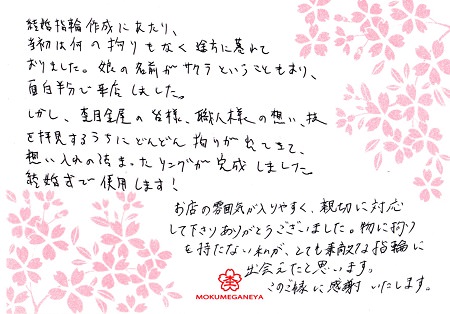 結婚指輪作成にあたり、
当初は何の拘りもなく途方に暮れて
おりました。娘の名前がサクラということもあり、
面白半分で来店しました。
しかし、杢目金屋の皆様、職人様の想い、技
を拝見するうちにどんどん拘りが出てきて、
想い入れの詰まったリングが完成しました。
結婚式で使用します!
お店の雰囲気が入りやすく、親切に対応
して下さりありがとうございました。物に拘り
を持たない私が、とても素敵な指輪に
出会えたと思います。
このご縁に感謝いたします。
MOKUMEGANEYA